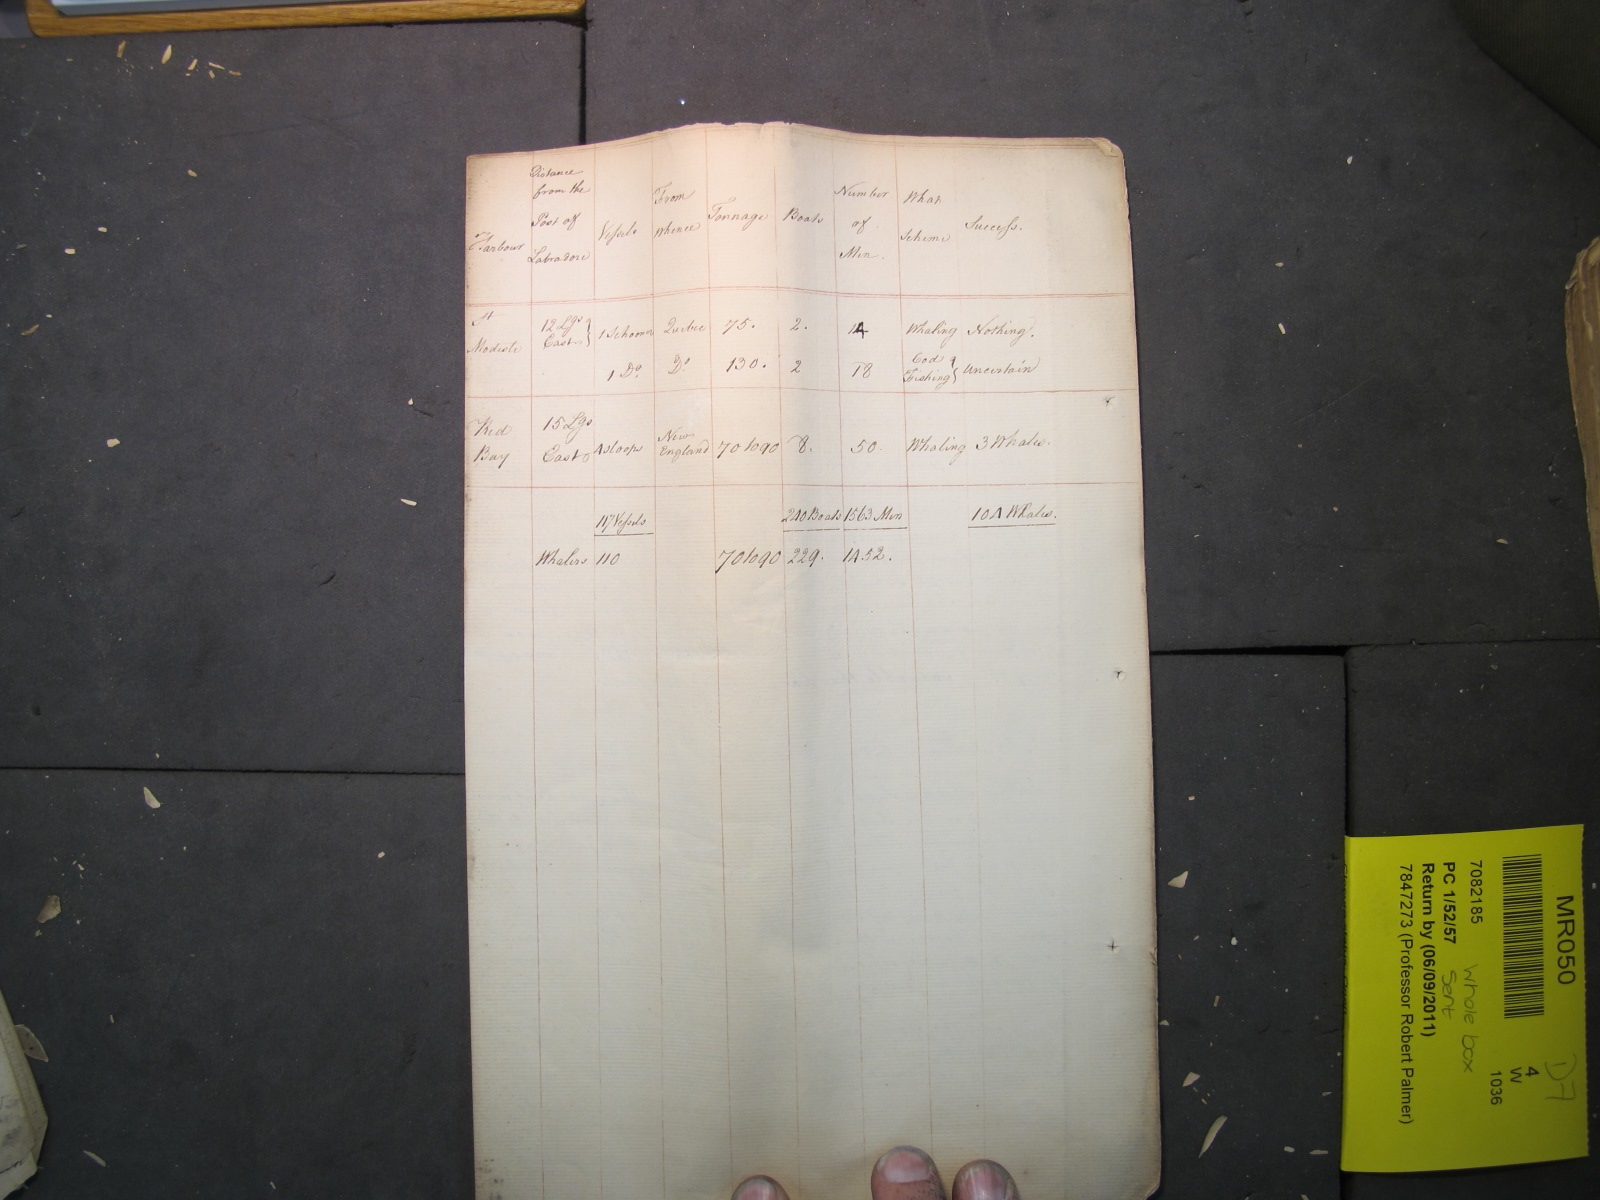 Harbour | Distance from the Post of Labradore | Vessels | From whence | Tonnage | Boats | Number of Men. | What Scheme | Success.
St Modeste | 12 Lgs East | 1 Schooner | Quebec | 75. | 2. | 14 | Whaling | Nothing.
1 Do. | Do | 130. | 2 | 18 | Cod Fishing | Uncertain
Red Bay | 15 Lgs East | 4 Sloops | New England | 70 to 90 | 8. | 50. | Whaling | 3 Whales.
117 Vessels | 240 Boats | 1563 Men | 104 Whales.
Whalers | 110 | 70 to 90 | 229. | 1452.
MR050
7082185
PC 1/52/57
Return by (06/09/2011)
7847273 (Professor Robert Palmer)
whole box
sent
4
W
1036